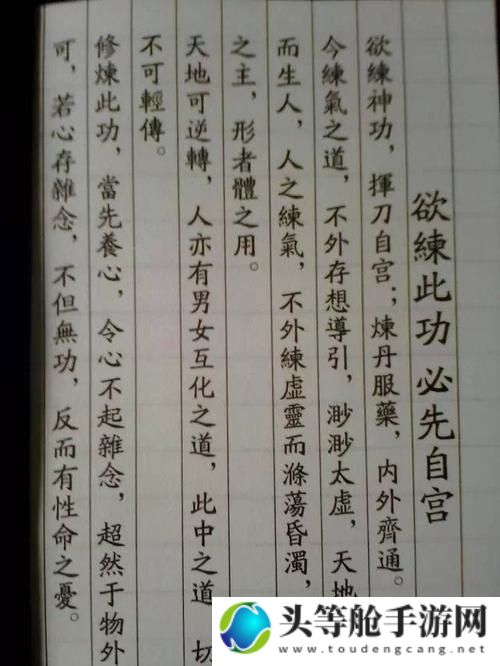 欲練此功 必先自宫
欲練神功，揮刀自宫；煉丹服藥，内外齊通。
今練氣之道，不外存想導引，渺渺太虛，天地
而生人，人之練氣，不外練虛靈而滌蕩昏濁，
之主，形者體之用。
天地可逆轉，人亦有男女互化之道，此中之道 切
不可輕傳。
修煉此功，當先養心，令心不起雜念，超然于物外
可，若心存雜念，不但無功，反而有性命之憂。
头等舱手游网
www.toudengcang.net